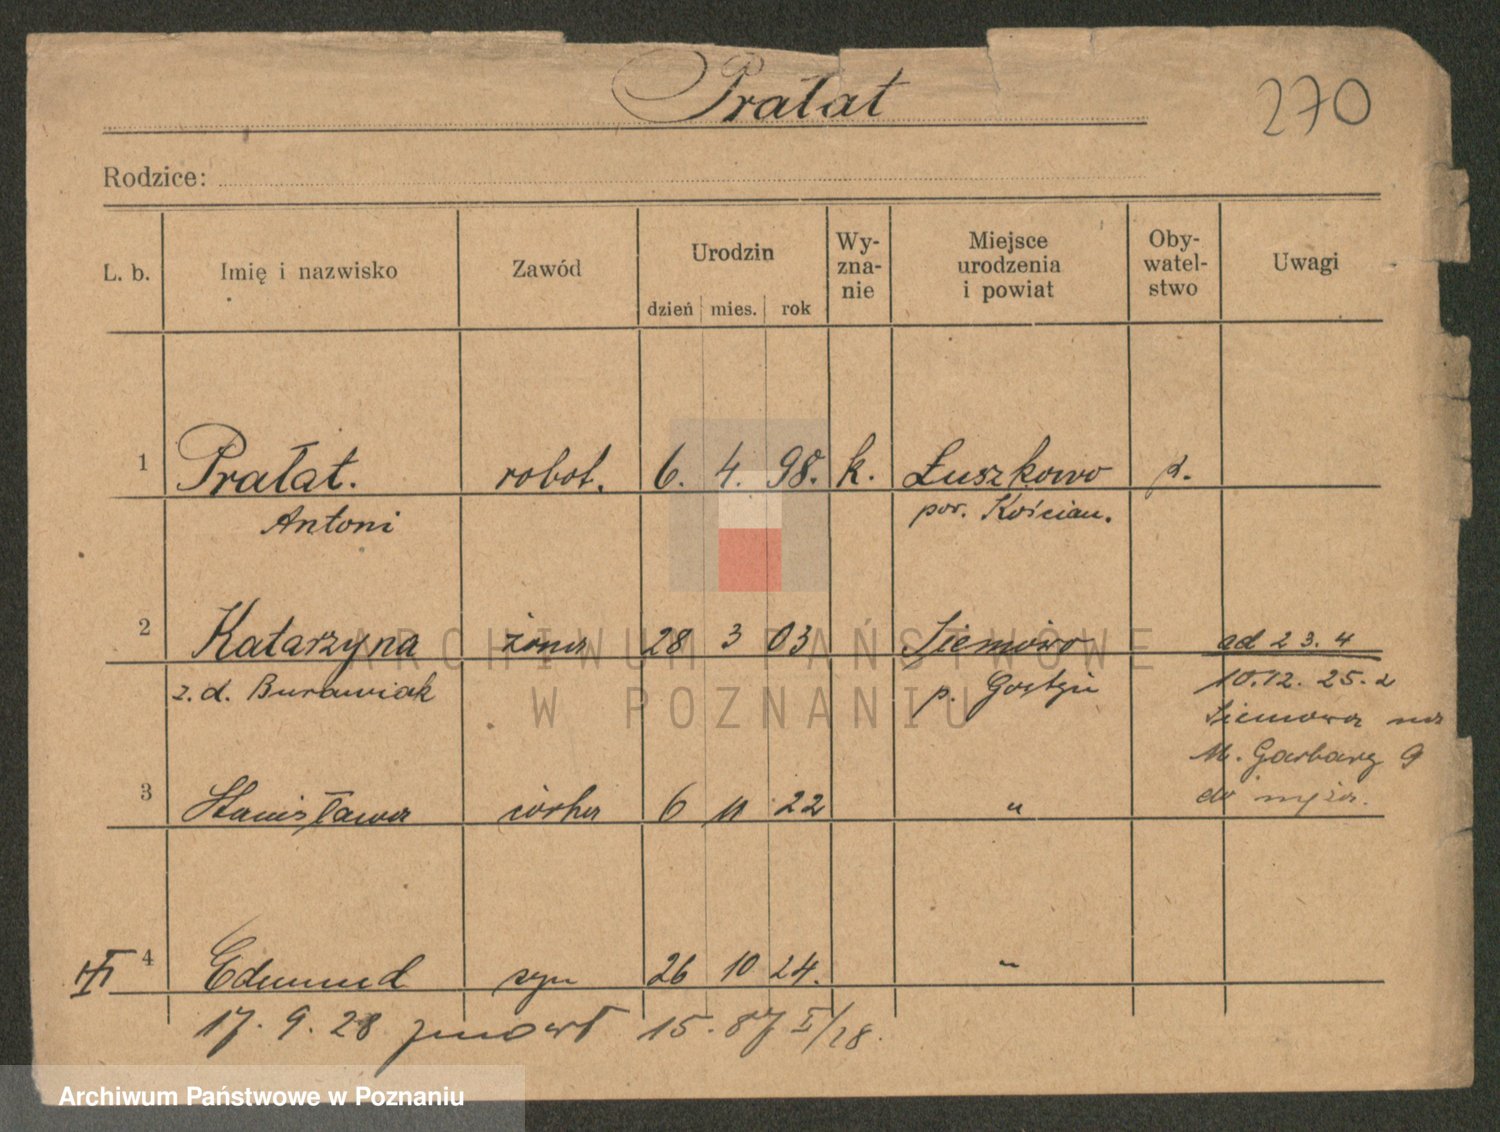 Prałat
270
Rodzice:
L. b. Imię i nazwisko Zawód Urodzin dzień mies. rok Wy-zna-nie Miejsce urodzenia i powiat Oby-watel-stwo Uwagi
1 Prałat. robot. 6. 4. 98. k. Łuszkowo p.
Antoni pow. Kościan.
2 Katarzyna żona 28 3 03 Siemowo ad 2 3. 4
z. d. Burawiak p. Gostyń 10.12. 25. z
Siemowa na
M. Garbary 9
do męża.
3 Stanisława córka 6 11 22 "
4 Edmund syn 26 10 24. "
17. 9. 28 zmarł 15. 87 I/28.
ARCHIWUM PAŃSTWOWE
W POZNANIU
Archiwum Państwowe w Poznaniu